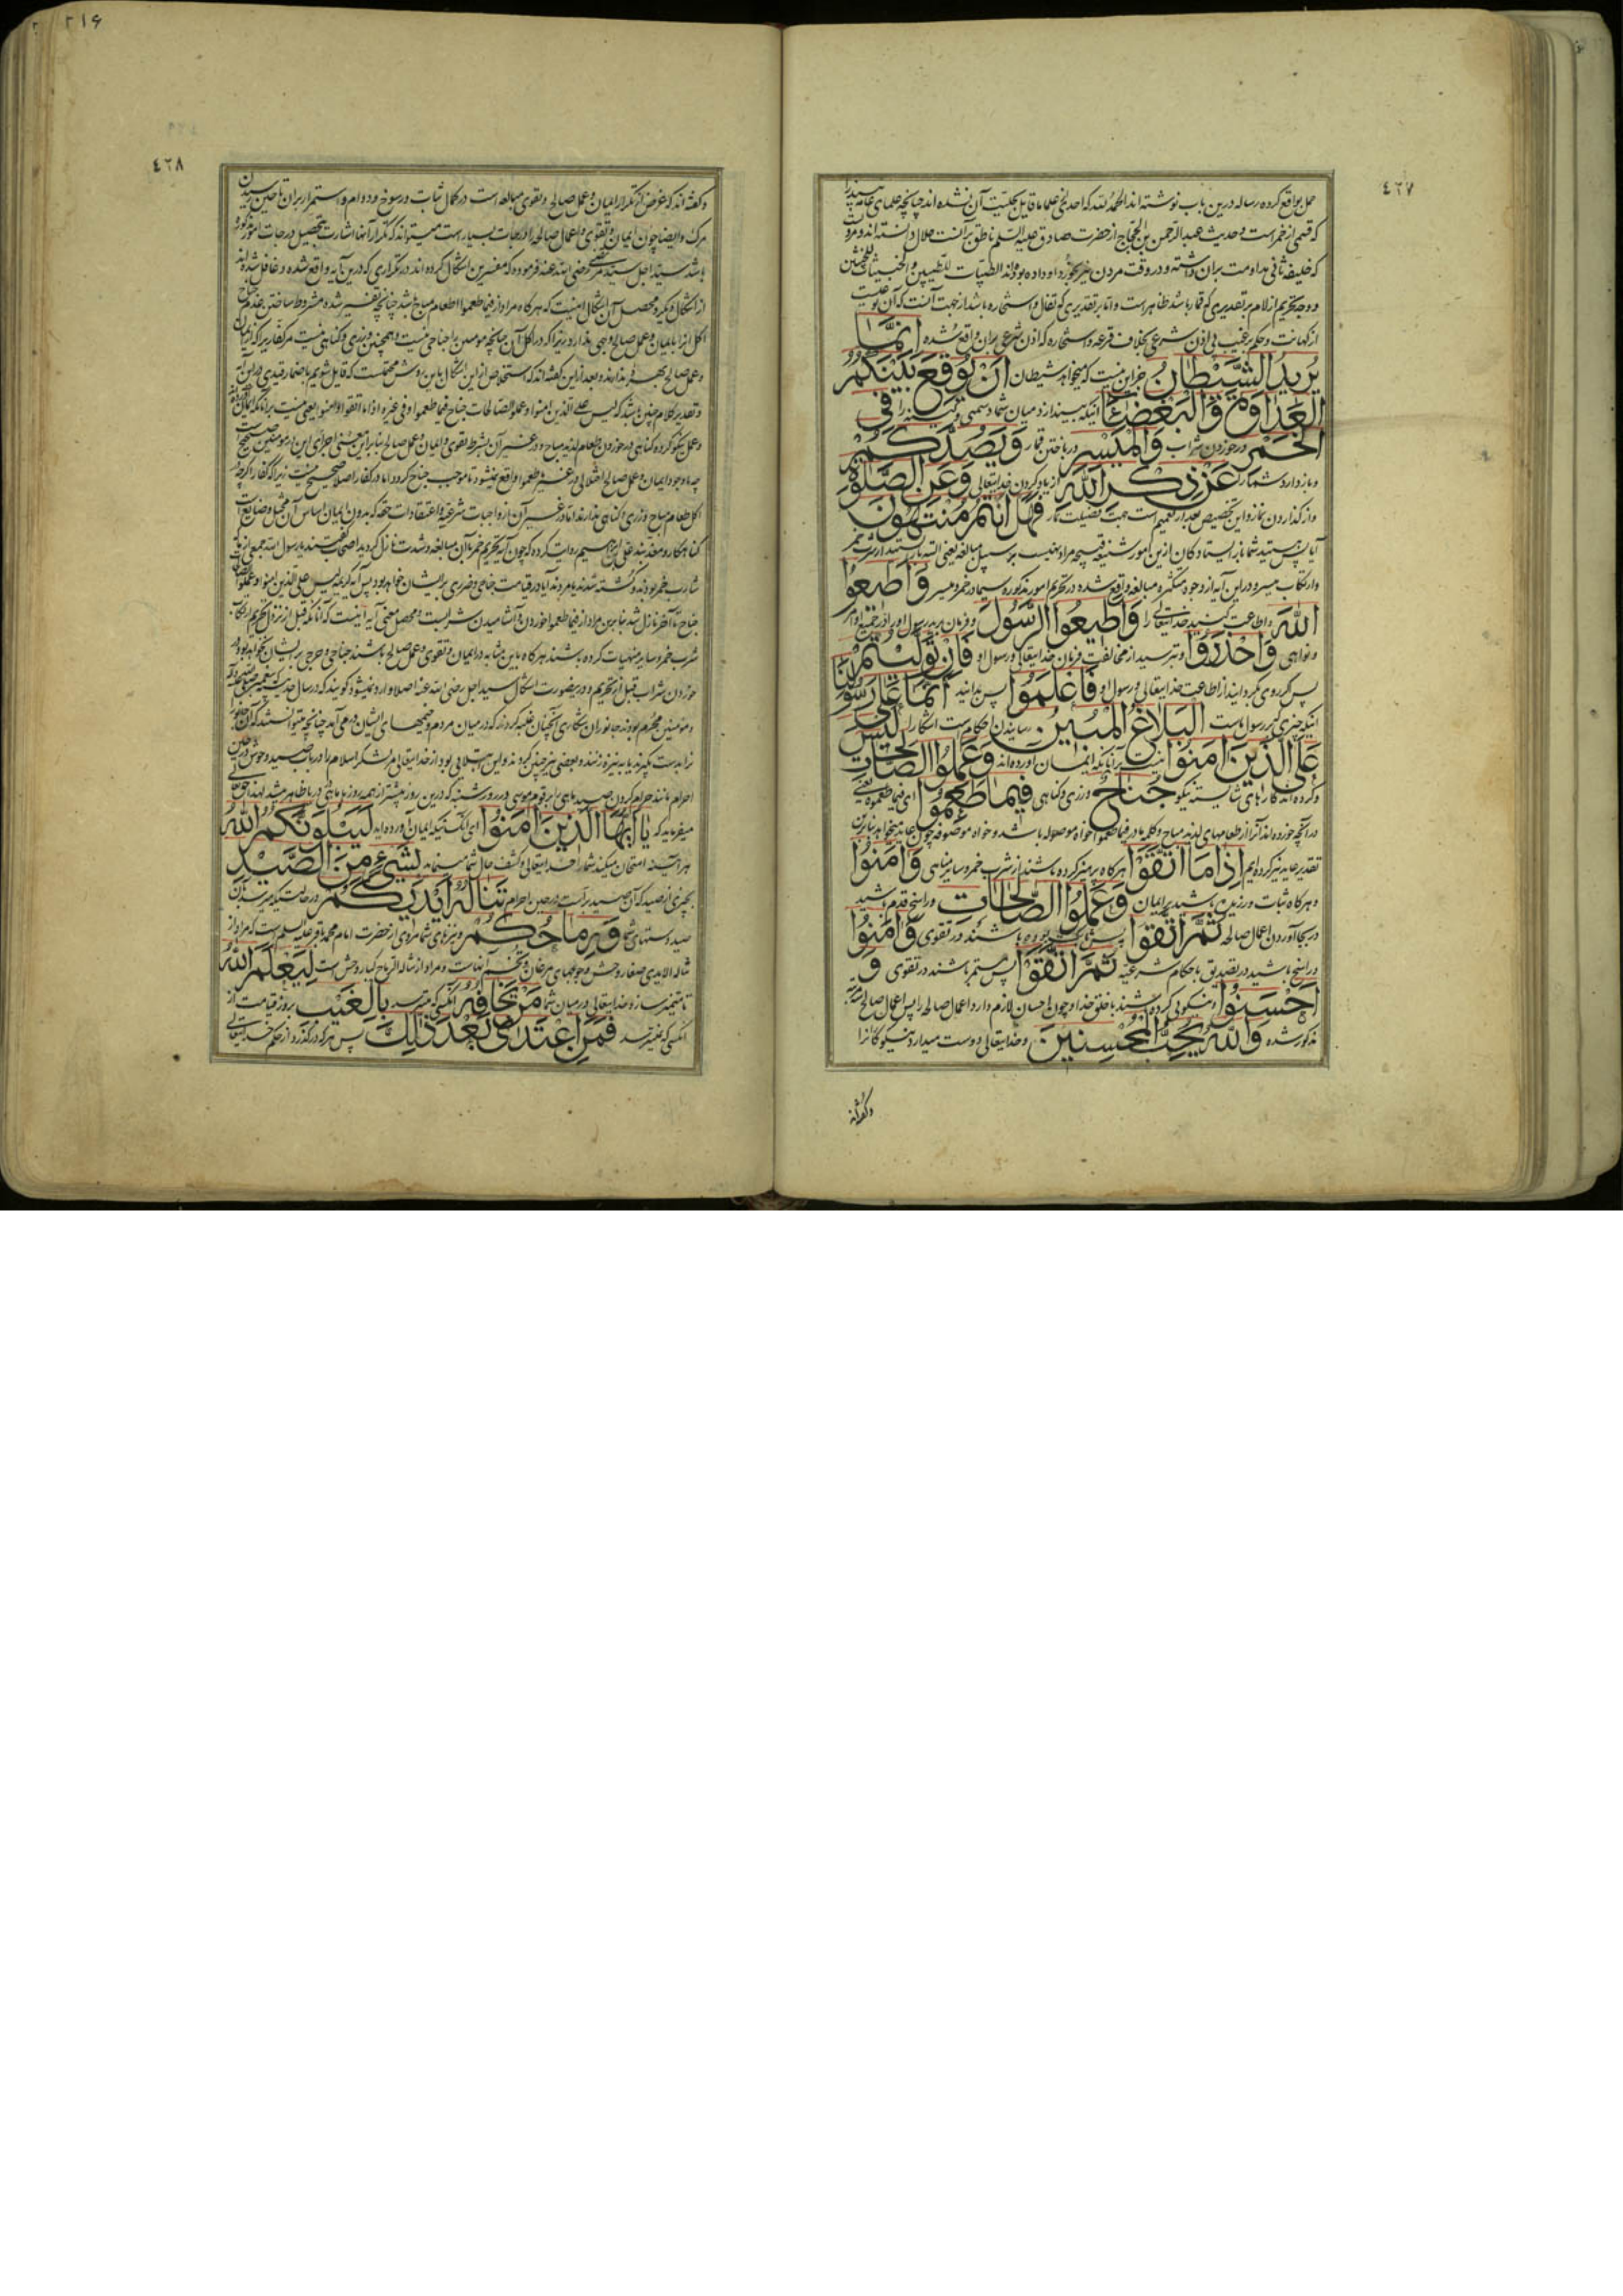 ٤٦٧
حمل بواقع کرده رساله درین باب نوشته‌اند الحمد لله که احدی از علما ما قایل بحلیت آن نشده‌اند چنانچه علمای عامه
که قسمی از خمر است و حدیث عبد الرحمن بن الحجاج از حضرت صادق علیه السلم ناطق برآنست حلال دانسته‌اند
که خلیفه ثانی مداومت بران داشته و در وقت مردن نیز بخورد او داده بودند الطیبات للطیبین و الخبیثات للخبیثین
و وجه تحریم ازلام بر تقدیری که قمار باشد ظاهر است و اما بر تقدیری که تفال و استخاره باشد از جهت آنست که آن نوعیست
از کهانت و حکم بر غیب بی اذن شرعی بخلاف قرعه و استخاره که اذن شرعی بران واقع شده اِنَّمَا
یُرِیدُ الشَّیْطَانُ جز این نیست که میخواهد شیطان اَنْ یُوقِعَ بَیْنَکُمُ
العَدَاوَةَ وَ الْبَغْضَاءَ آنکه بیندازد میان شما دشمنی و کینه را فِی
الْخَمْرِ در خوردن شراب وَ الْمَیْسِرِ در باختن قمار وَ یَصُدَّکُمْ
و باز دارد شما را عَنْ ذِکْرِ اللّٰهِ از یاد کردن خدایتعالی وَ عَنِ الصَّلٰوةِ
و از گذاردن نماز و این تخصیص بعد از تعمیم است جهت فضیلت نماز فَهَلْ اَنْتُمْ مُنْتَهُونَ
آیا پس هستید شما باز ایستادگان ازین امور شنیعه قبیحه مراد نهیست بر سبیل مبالغه یعنی البته باز ایستید از شرب خمر
و ارتکاب میسر و در این آیه از وجوه متکثره مبالغه واقع شده در تحریم امور مذکوره سیما در خمر و میسر وَ اَطِیعُوا
اللّٰهَ و اطاعت کنید خدایتعالی را وَ اَطِیعُوا الرَّسُولَ و فرمان برید رسول او را در جمیع اوامر
و نواهی وَ احْذَرُوا و بترسید از مخالفت فرمان خدایتعالی و رسول او فَاِنْ تَوَلَّیْتُمْ
پس اگر روی بگردانید از اطاعت خدایتعالی و رسول او فَاعْلَمُوا پس بدانید اَنَّمَا عَلٰی رَسُولِنَا
اینکه چیزی که بر رسول ماست البَلَاغُ المُبِینُ رسانیدن احکام است آشکارا لَیْسَ
عَلَی الَّذِینَ اٰمَنُوا نیست بر آنانکه ایمان آورده‌اند وَ عَمِلُوا الصَّالِحَاتِ
و کرده‌اند کارهای شایسته نیکو جُنَاحٌ وزری و گناهی فِیمَا طَعِمُوا ای فیما طعموه یعنی
در آنچه خورده‌اند آنرا از طعامهای لذیذ مباح و کلمه ما در فیما طعموا خواه موصوله باشد و خواه موصوفه چون عاید میخواهد بنابرین
تقدیر عاید نیز کرده‌ایم اِذَا مَا اتَّقَوْا هرگاه پرهیز کرده باشند از شرب خمر و سایر مناهی وَ اٰمَنُوا
و هرگاه ثبات ورزیده باشند بر ایمان وَ عَمِلُوا الصَّالِحَاتِ و راسخ قدم باشند
در بجا آوردن اعمال صالحه ثُمَّ اتَّقَوْا پس باشند در تقوی وَ اٰمَنُوا
و راسخ باشند در تصدیق باحکام شرعیه ثُمَّ اتَّقَوْا پس مستمر باشند در تقوی وَ
اَحْسَنُوا و نیکویی کرده باشند با خلق خدا و چون احسان لازم دارد اعمال صالحه را پس اعمال صالحه
مذکور شده وَ اللّٰهُ یُحِبُّ المُحْسِنِینَ و خدایتعالی دوست میدارد نیکوکارانرا
و گفته‌اند
٢١۶
٤٦٨
و گفته‌اند که غرض از تکرار ایمان و عمل صالح و تقوی مبالغه است در کمال ثبات و رسوخ و دوام و استمرار بران تا حین رسیدن
مرک و ایضا چون ایمان و تقوی و اعمال صالحه را درجات بسیار است میتواند که تکرار آنها اشارت بتحصیل درجات امور مذکوره
باشد سید اجل سید مرتضی رضی الله عنه فرموده که مفسرین اشکال کرده‌اند در تکراری که درین آیه واقع شده و غافل شده‌اند
از اشکال دیگر و محصل آن اشکال اینست که هرگاه مراد از فیما طعموا اطعام مباح باشد چنانچه تفسیر شده مشروط ساختن عدم جناح
اکل آنرا بایمان و عمل صالح وجهی ندارد زیرا که در اکل آن چنانچه مومنین را جناحی نیست و همچنین وزری و گناهی نیست مر کفار را که از ایمان
و عمل صالح بهره ندارند و بعد از این گفته‌اند که استخلاص از این اشکال باین روش ممکنست که قایل شویم باضمار قیدی در این آیه
و تقدیر کلام چنین باشد که لیس علی الذین امنوا و عملوا الصالحات جناح فیما طعموا و فی غیره اذا ما اتقوا و امنوا یعنی نیست بر آنانکه ایمان آورده‌اند
و عمل نیکو کرده گناهی در خوردن طعام لذیذ مباح و در غیر آن بشرط تقوی و ایمان و عمل صالح بنابراین معنی اجرای این در مومنین صحیح است
چه با وجود ایمان و عمل صالح اختلالی در غیر ما طعموا واقع نمیشود تا موجب جناح گردد اما در کفار اصلا صحیح نیست زیرا که کفار اگرچه در
اکل طعام مباح وزری و گناهی ندارند اما در غیر آن از واجبات شرعیه و اعتقادات حقه که بدون ایمان اساس آن مختل و ضایع است
گناهکار و معذبند علی بن ابراهیم روایت کرده که چون آیه تحریم خمر بآن مبالغه و شدت نازل گردید اصحاب گفتند یا رسول الله جمعی از ما
شارب خمر بودند و کشته شدند یا مردند آیا در قیامت جناحی و ضرری بر ایشان خواهد بود پس آیه کریمه لیس علی الذین امنوا و عملوا الصالحات
جناح تا آخر نازل شد بنابرین مراد از فیما طعموا خوردن و آشامیدن شرابست و محصل معنی آیه اینست که آنانکه قبل از نزول تحریم ارتکاب
شرب خمر و سایر منهیات کرده باشند هرگاه باین مثابه در ایمان و تقوی و عمل صالح باشند جناحی و حرجی بر ایشان نخواهد بود در
خوردن شراب قبل از تحریم و درینصورت اشکال سید اجل رضی الله عنه اصلا وارد نمیشود گویند که در سال حدیبیه که پیغمبر صلی الله علیه و آله
و مومنین محرم بودند جانوران شکاری آنچنان غلبه کردند که در میان مردم و خیمهای ایشان درمی‌آمد چنانچه میتوانستند که آن جانور
را بدست بگیرند یا به نیزه زنند و بعضی نیز چنین کردند و این ابتلایی بود از خدایتعالی مر لشکر اسلام را در باب صید وحوش در حین
احرام مانند حرام کردن صید ماهی را بر قوم موسی در روز شنبه که درین روز بیشتر از همه روزها ماهی در دریا ظاهر میشد لهذا حق تعالی
میفرماید که یَا اَیُّهَا الَّذِینَ اٰمَنُوا ای آنکسانیکه ایمان آورده‌اید لَیَبْلُوَنَّکُمُ اللّٰهُ
هر آینه امتحان میکند شما را خدایتعالی و کشف حال شما مینماید بِشَیْءٍ مِنَ الصَّیْدِ
بچیزی از صید که آن صید بر است در حین احرام تَنَالُهُ اَیْدِیکُمْ در حالتیکه میرسد بآن
صید دستهای شما وَ رِمَاحُکُمْ و نیزهای شما مروی از حضرت امام محمد باقر علیه السلم است که مراد از
تناله الایدی صغار وحش و جوجهای مرغان و تخم آنهاست و مراد از تناله الرماح کبار وحش است لِیَعْلَمَ اللّٰهُ
تا متمیز سازد خدایتعالی در میان شما مَنْ یَخَافُهُ آنکسی که میترسد بِالْغَیْبِ بروز قیامت از
آنکسی که نمیترسد فَمَنِ اعْتَدٰی بَعْدَ ذٰلِکَ پس هر که درگذرد از حکم خدایتعالی